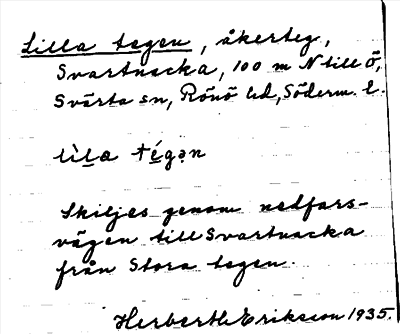 Lilla tegen, åkerteg,
Svartnacka, 100 m N till Ö,
Svärta sn, Rönö hd, Söderm. l.
lìla tégən
Skiljes genom nedfars-
vägen till Svartnacka
från Stora tegen.
Herbert Erikson 1935.